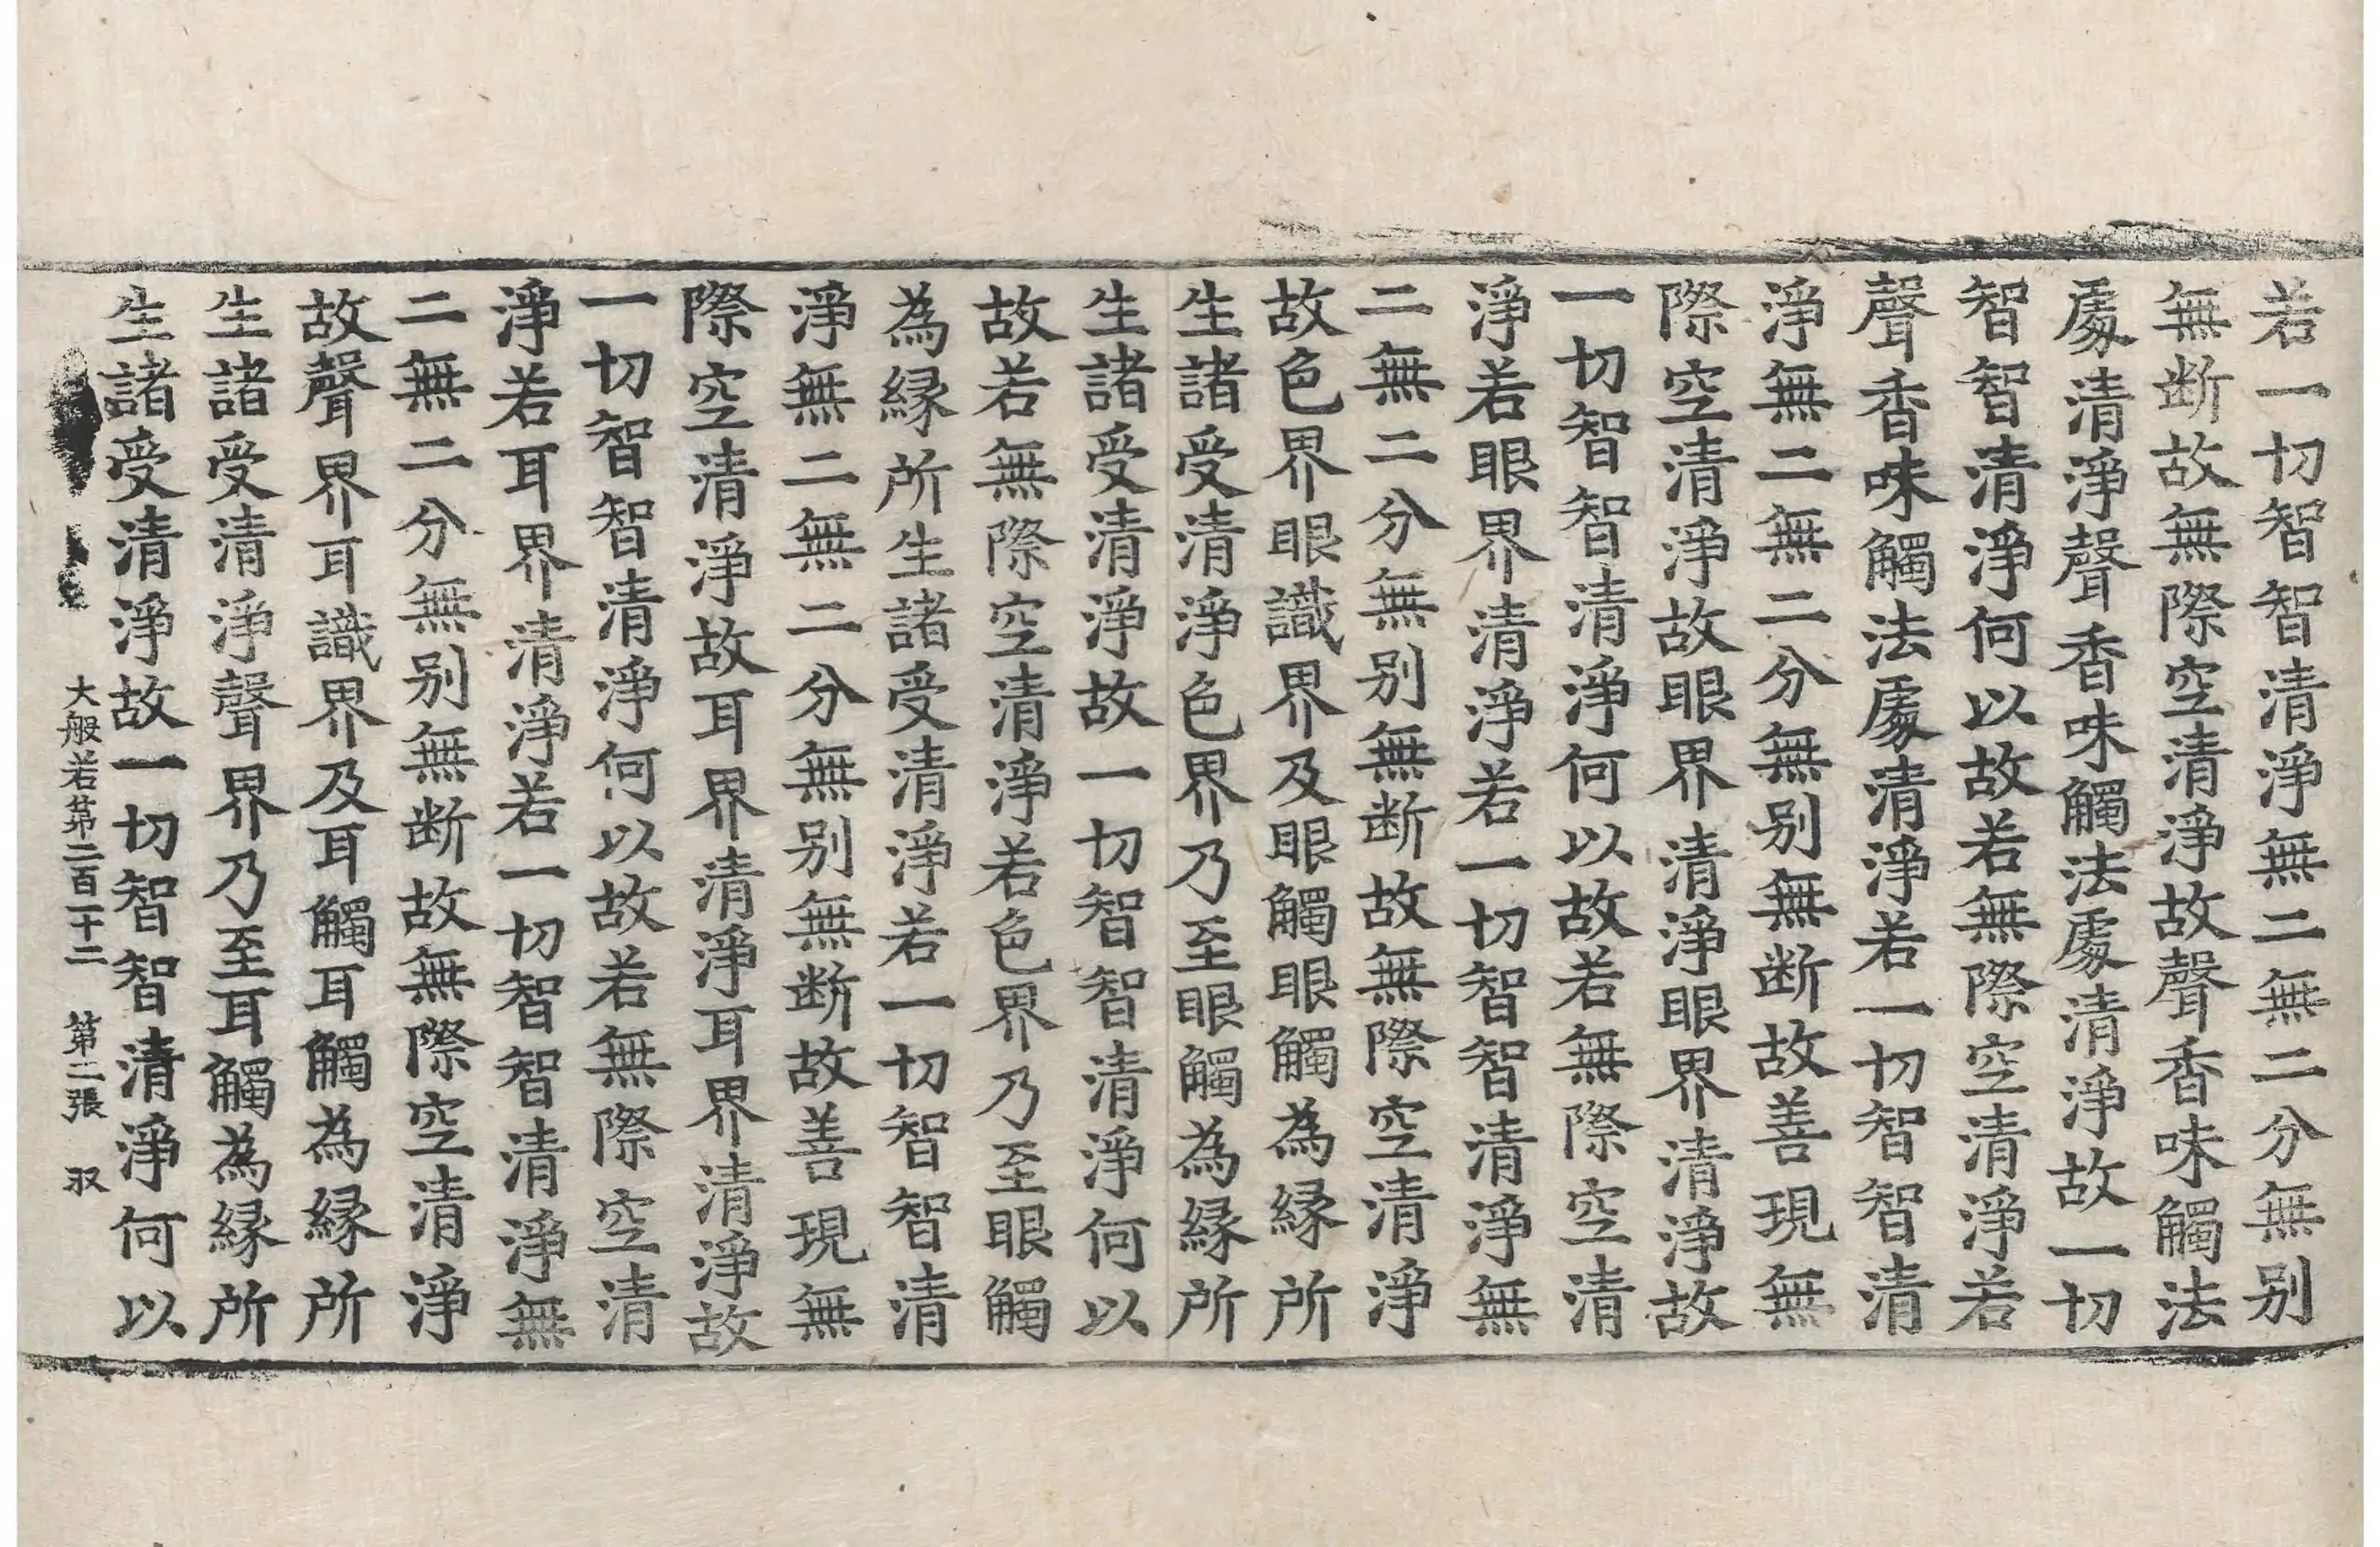 若一切智智清淨無二無二分無别
無断故無際空清淨故聲香味觸法
處清淨聲香味觸法處清淨故一切
智智清淨何以故若無際空清淨若
聲香味觸法處清淨若一切智智清
淨無二無二分無别無断故善現無
際空清淨故眼界清淨眼界清淨故
一切智智清淨何以故若無際空清
淨若眼界清淨若一切智智清淨無
二無二分無别無断故無際空清淨
故色界眼識界及眼觸眼觸為緣所
生諸受清淨色界乃至眼觸為緣所
生諸受清淨故一切智智清淨何以
故若無際空清淨若色界乃至眼觸
為緣所生諸受清淨若一切智智清
淨無二無二分無别無断故善現無
際空清淨故耳界清淨耳界清淨故
一切智智清淨何以故若無際空清
淨若耳界清淨若一切智智清淨無
二無二分無别無断故無際空清淨
故聲界耳識界及耳觸耳觸為緣所
生諸受清淨聲界乃至耳觸為緣所
生諸受清淨故一切智智清淨何以
大般若第二百二十二 第二張 㕛